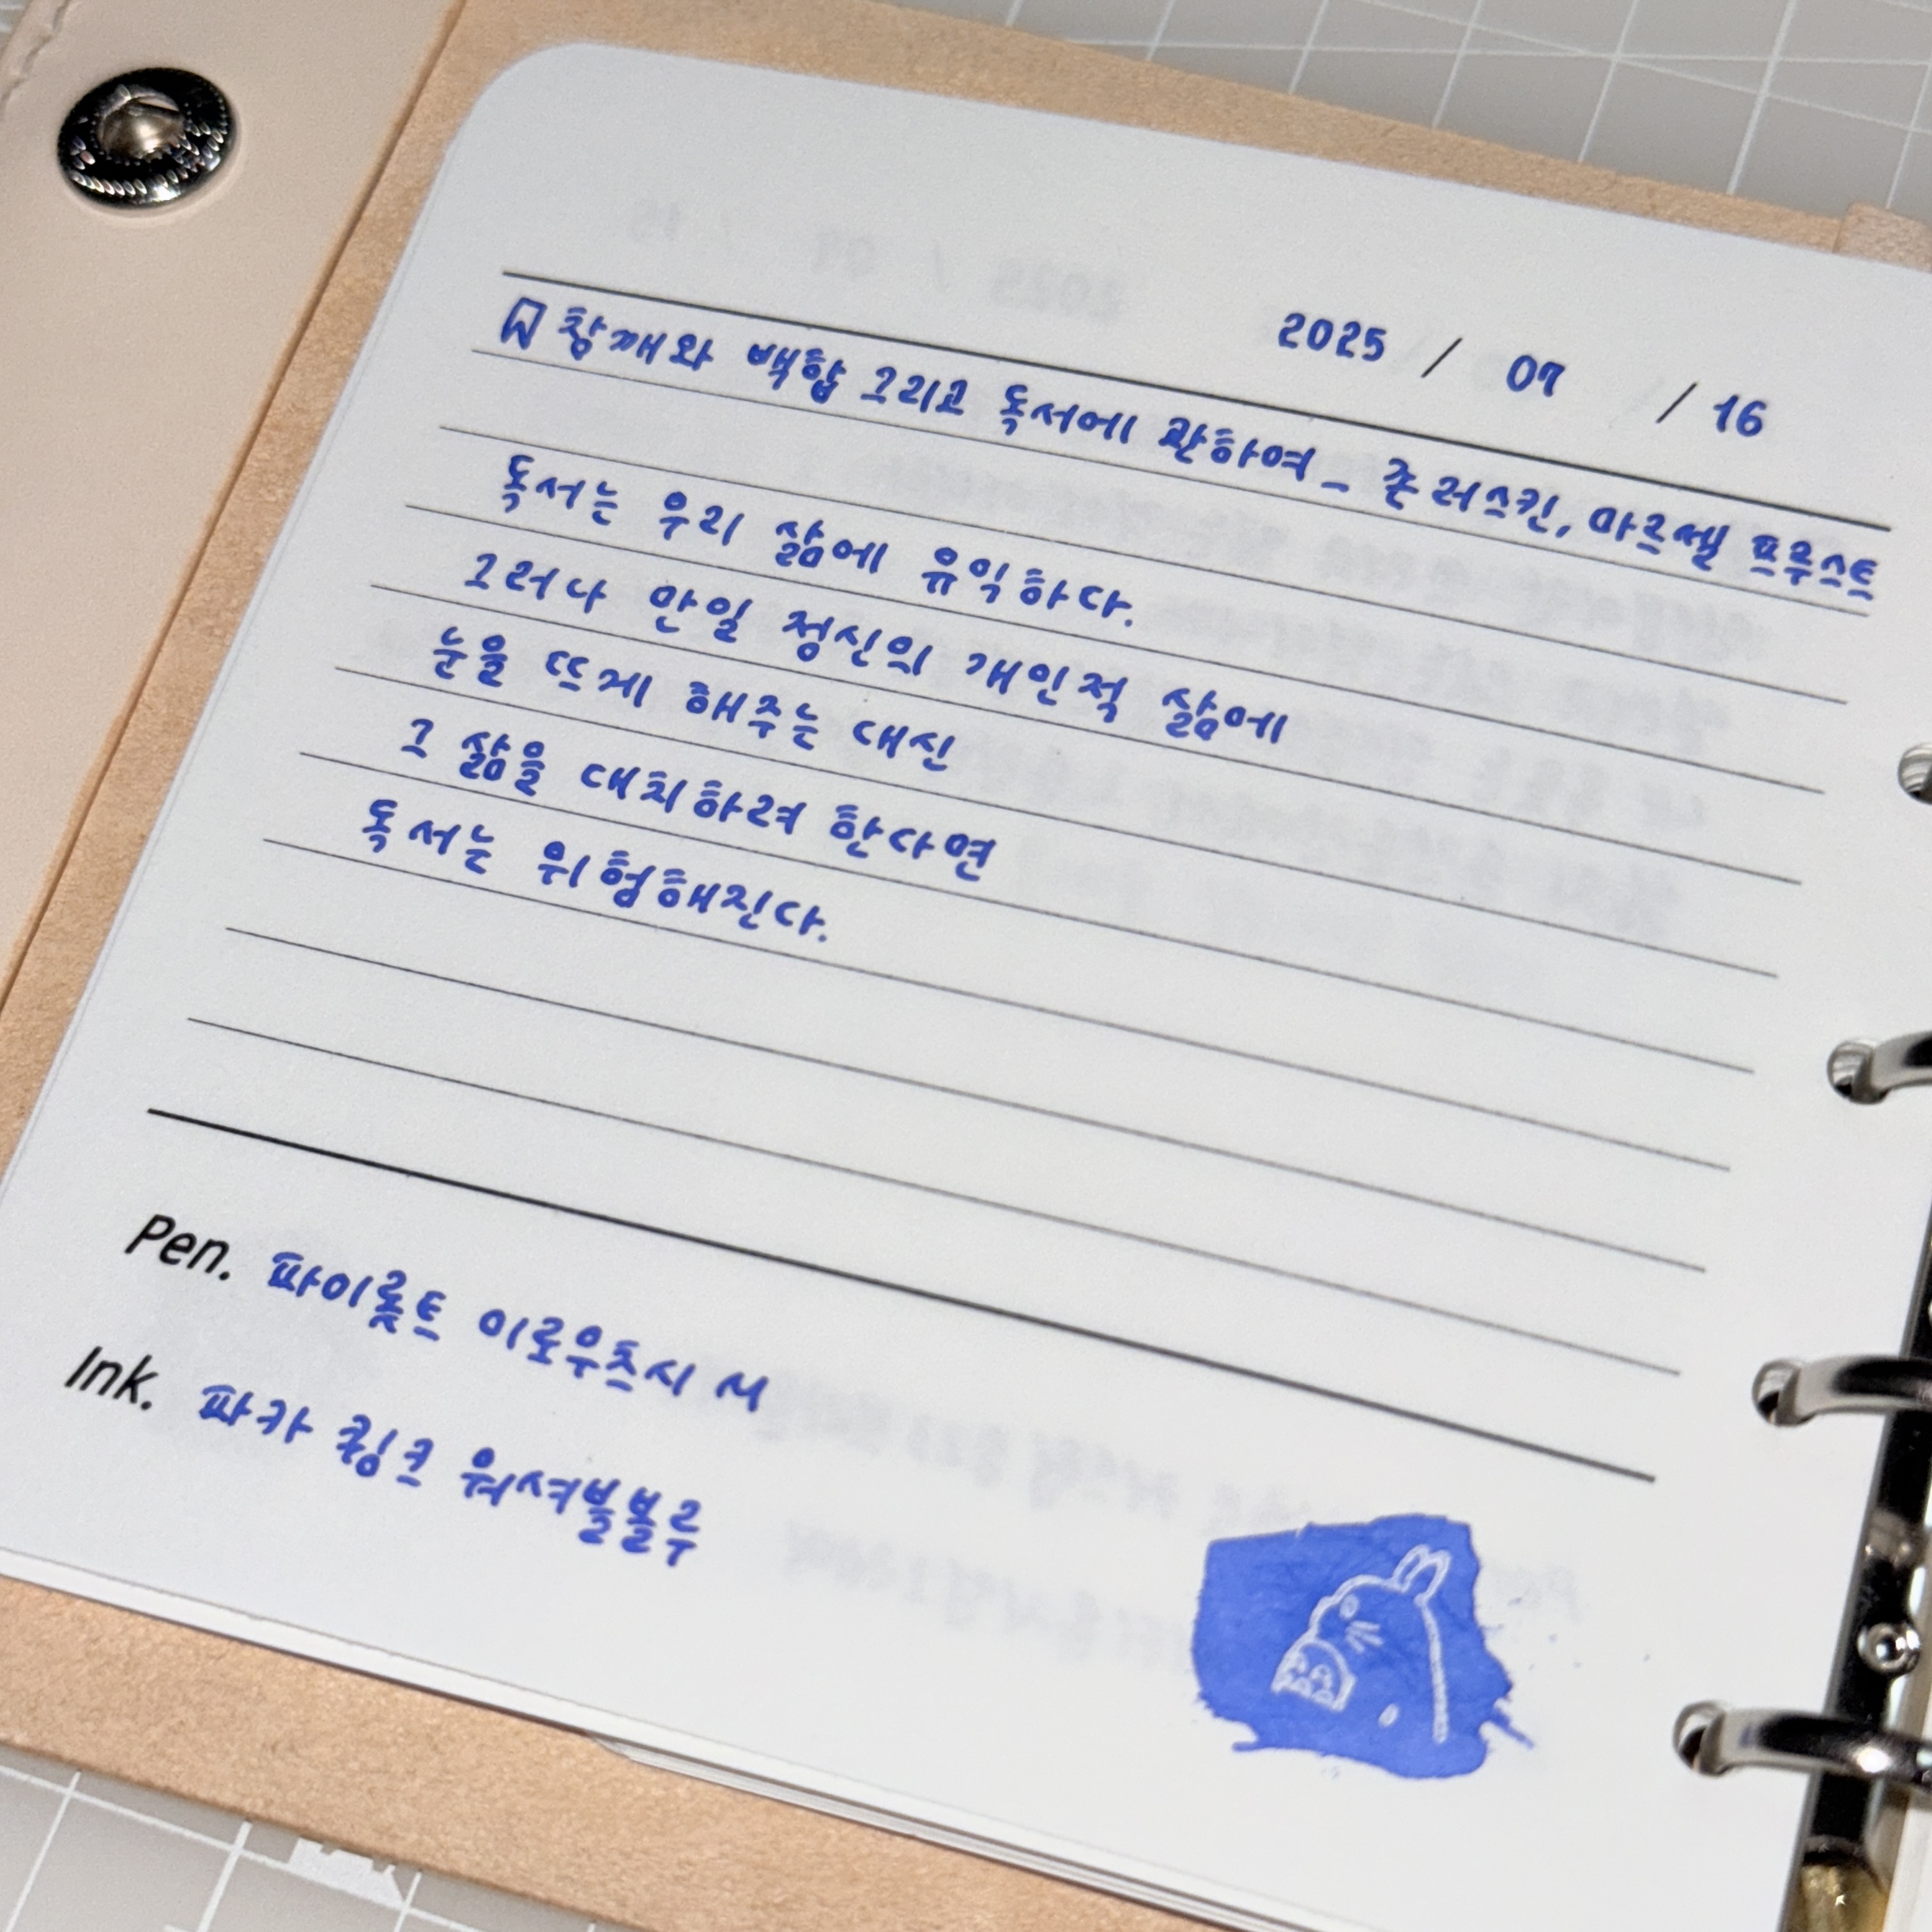 2025 / 07 / 16
참깨와 백합 그리고 독서에 관하여_ 존 러스킨, 마르셀 프루스트
독서는 우리 삶에 유익하다.
그러나 만일 정신의 개인적 삶에
눈을 뜨게 해주는 대신
그 삶을 대치하려 한다면
독서는 위험해진다.
Pen. 파이롯트 이로우츠시 M
Ink. 파카 큉크 워셔블블루